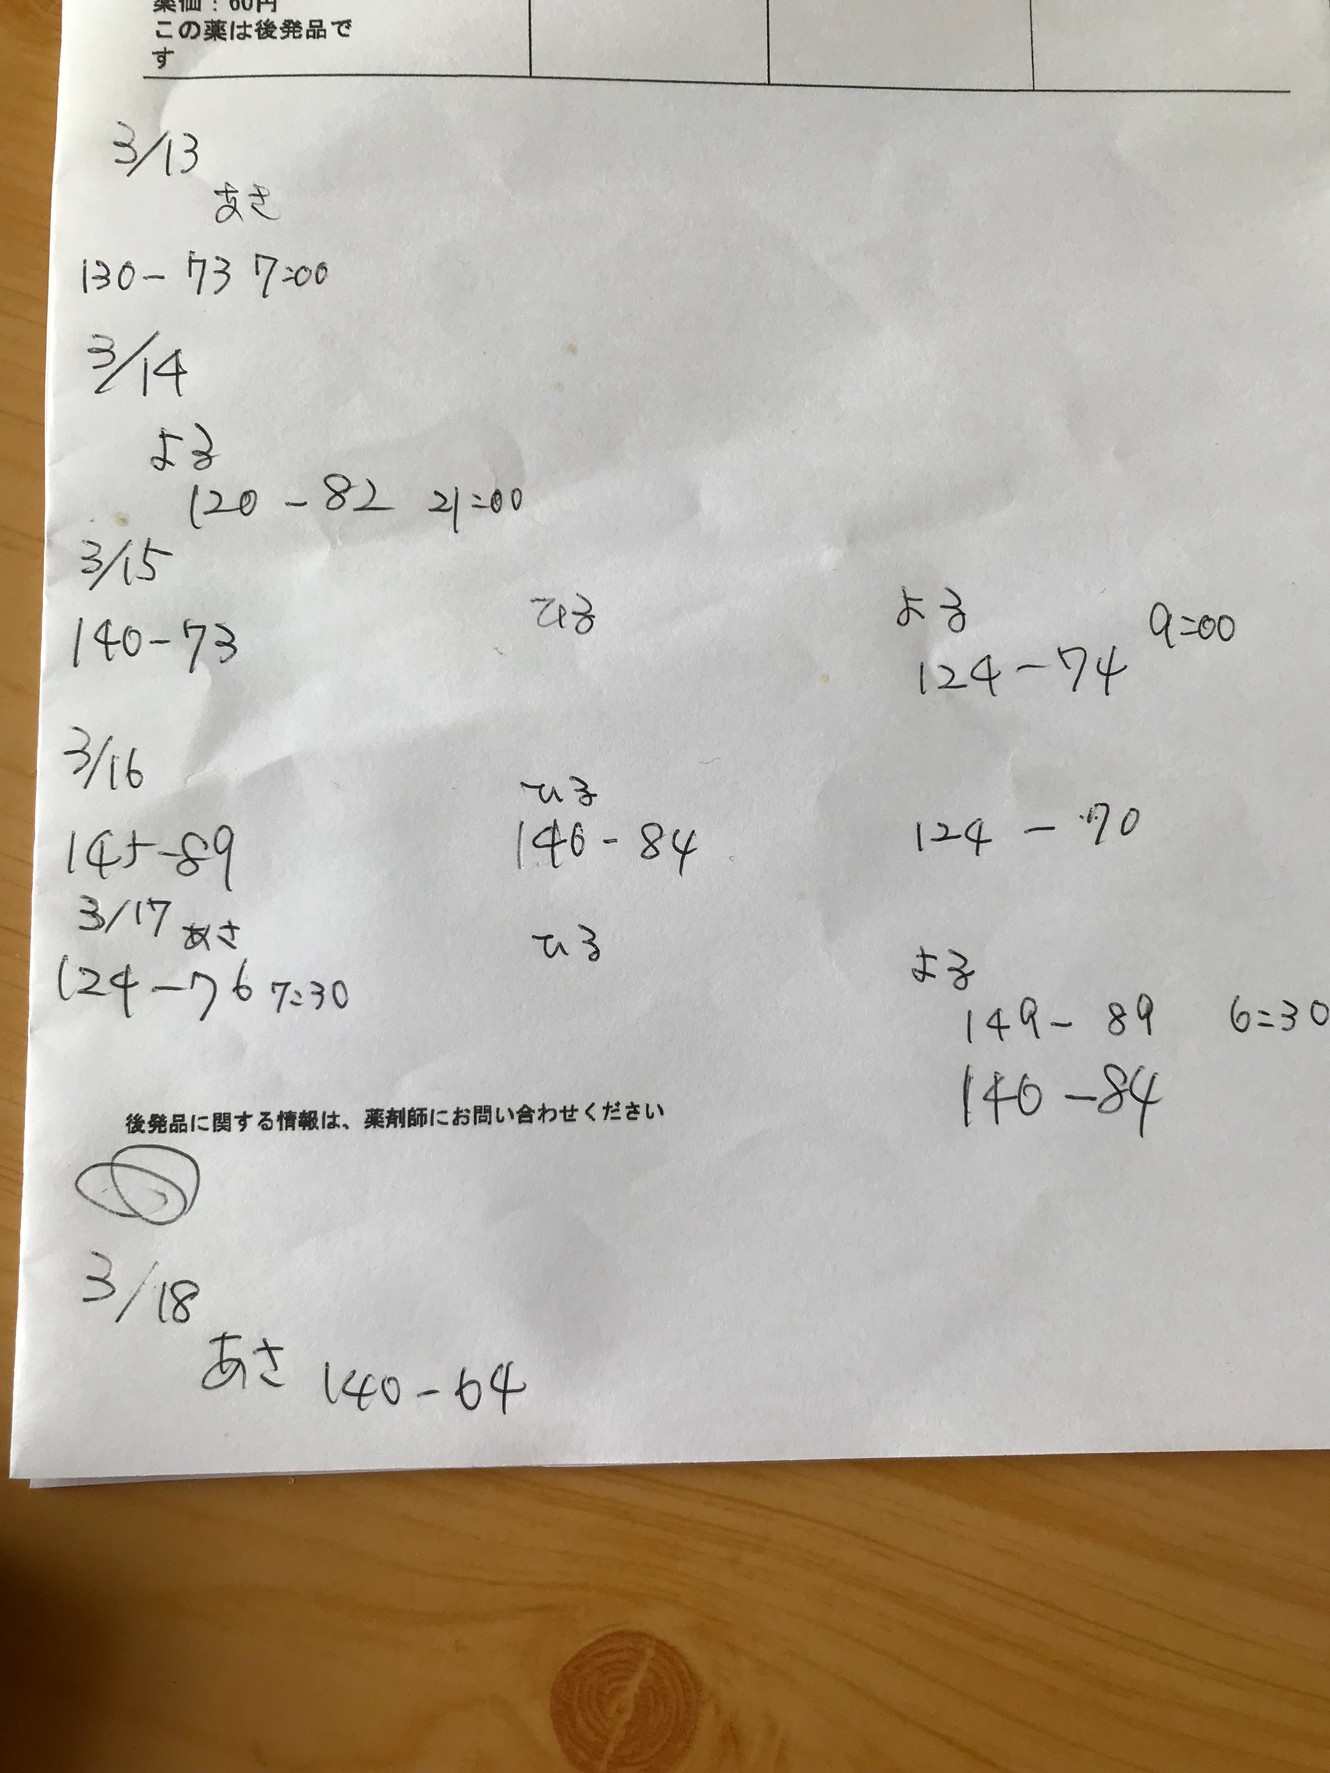 薬価：60円
この薬は後発品で
す
3/13
あさ
130-73 7:00
3/14
よる
120-82 21:00
3/15
ひる よる 9:00
140-73 124-74
3/16
ひる
145-89 146-84 124-70
3/17 あさ ひる よる
124-76 7:30 149-89 6:30
140-84
後発品に関する情報は、薬剤師にお問い合わせください
3/18
あさ 140-64